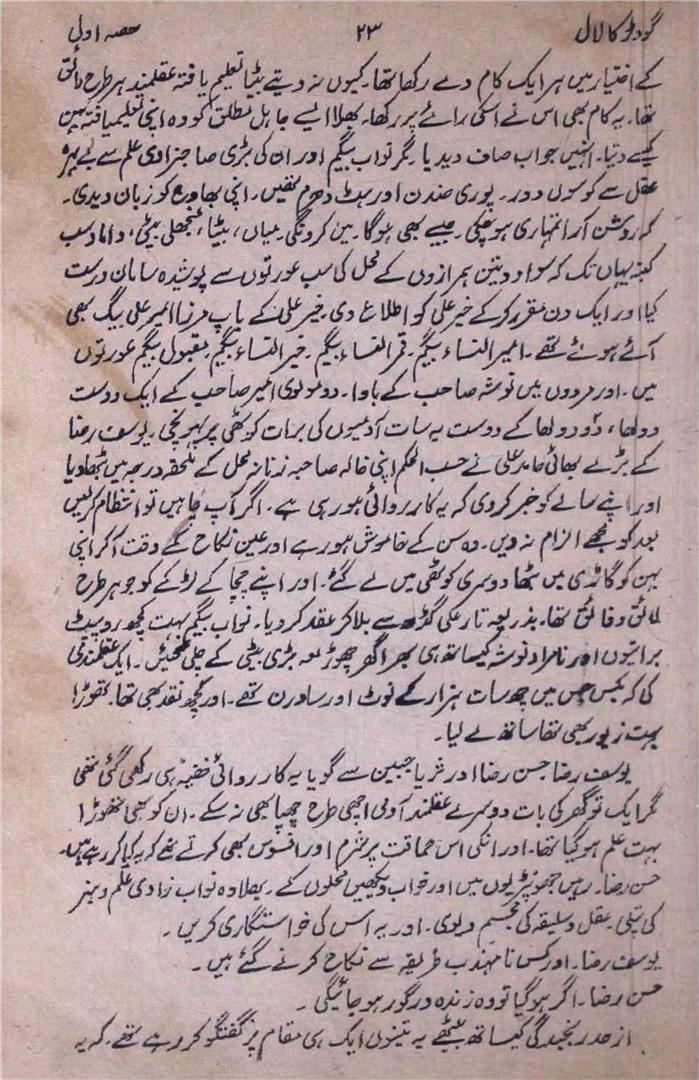 گودڑ کا لال ۲۳ حصہ اول
کے اختیار میں ہر ایک کام دے رکھا تھا۔ کیوں نہ دیتے بیٹا تعلیم یافتہ عقلمند ہر طرح لائق
تھا۔ یہ کام بھی اس نے اسکی رائے پر رکھا۔ بھلا ایسے جاہل مطلق کو وہ اپنی تعلیمیافتہ بہن
کیسے دیتا۔ انہیں جواب صاف دیدیا۔ مگر نواب بیگم اور ان کی بڑی صاحبزادی علم سے بے بہرہ
عقل سے کوسوں دور۔ پوری ضدن اور ہٹ دھرم تھیں۔ اپنی بھاوج کو زبان دیدی۔
کہ روشن آرا تمہاری ہو چکی۔ جیسے بھی ہوگا۔ میں کرونگی۔ میاں، بیٹا، منجھلی بیٹی، داماد سب
کیا اور ایک دن مقرر کرکے خیر علی کو اطلاع دی۔ خیر علی کے باپ مرزا امیر علی بیگ بھی
آئے ہوئے تھے۔ امیر النساء بیگم۔ قمر النساء بیگم۔ خیر النساء بیگم۔ مقبول بیگم عورتوں
میں۔ اور مردوں میں نوشہ صاحب کے باوا۔ دو مولوی امیر صاحب کے ایک دوست
دولھا، دو دولھا کے دوست یہ سات آدمیوں کی برات کوٹھی پر پہونچی۔ یوسف رضا
کے بڑے بھائی حامد علی نے حسب الحکم اپنی خالہ صاحبہ زنانہ محل کے ملحقہ درجہ میں بٹھا دیا
اور اپنے سالے کو خبر کردی کہ یہ کارروائی ہو رہی ہے۔ اگر آپ چاہیں تو انتظام کرلیں
بعد کو مجھے الزام نہ دیں۔ وہ سن کے خاموش ہو رہے اور عین نکاح کے وقت آکر اپنی
بہن کو گاڑی میں بٹھا دوسری کوٹھی میں لے گئے۔ اور اپنے چچا کے لڑکے کو جو ہر طرح
لائق و فائق تھا۔ بذریعہ تار علی گڑھ سے بلا کر عقد کردیا۔ نواب بیگم بہت کچھ رو پیٹ
براتیوں اور نامراد نوشہ کیساتھ ہی بھرا گھر چھوڑ معہ بڑی بیٹی کے چلی گئیں۔ ایک عقلمندی
کی کہ بکس جس میں چھ سات ہزار کے نوٹ اور ساورن تھے۔ اور کچھ نقد بھی تھا۔ تھوڑا
بہت زیور بھی تھا ساتھ لے لیا۔
یوسف رضا حسن رضا اور ثریا جبین سے گویا یہ کارروائی خفیہ ہی رکھی گئی تھی
مگر ایک تو گھر کی بات دوسرے عقلمند آدمی اچھی طرح چھپا بھی نہ سکے۔ ان کو بھی تھوڑا
بہت علم ہوگیا تھا۔ اور انکی اس حماقت پر شرم اور افسوس بھی کرتے تھے کہ یہ کیا کر رہے ہیں۔
حسن رضا۔ رہیں جھونپڑیوں میں اور خواب دیکھیں محلوں کے۔ بھلا وہ نواب زادی علم و ہنر
کی پتلی۔ عقل و سلیقہ کی مجسم دیوی۔ اور یہ اس کی خواستگاری کریں۔
یوسف رضا۔ اور کس نا مہذب طریقہ سے نکاح کرنے گئے ہیں۔
حسن رضا۔ اگر ہوگیا تو وہ زندہ درگور ہو جائیگی۔
از حد رنجیدگی کیساتھ بیٹھے یہ تینوں ایک ہی مقام پر گفتگو کر رہے تھے۔ کہ یہ